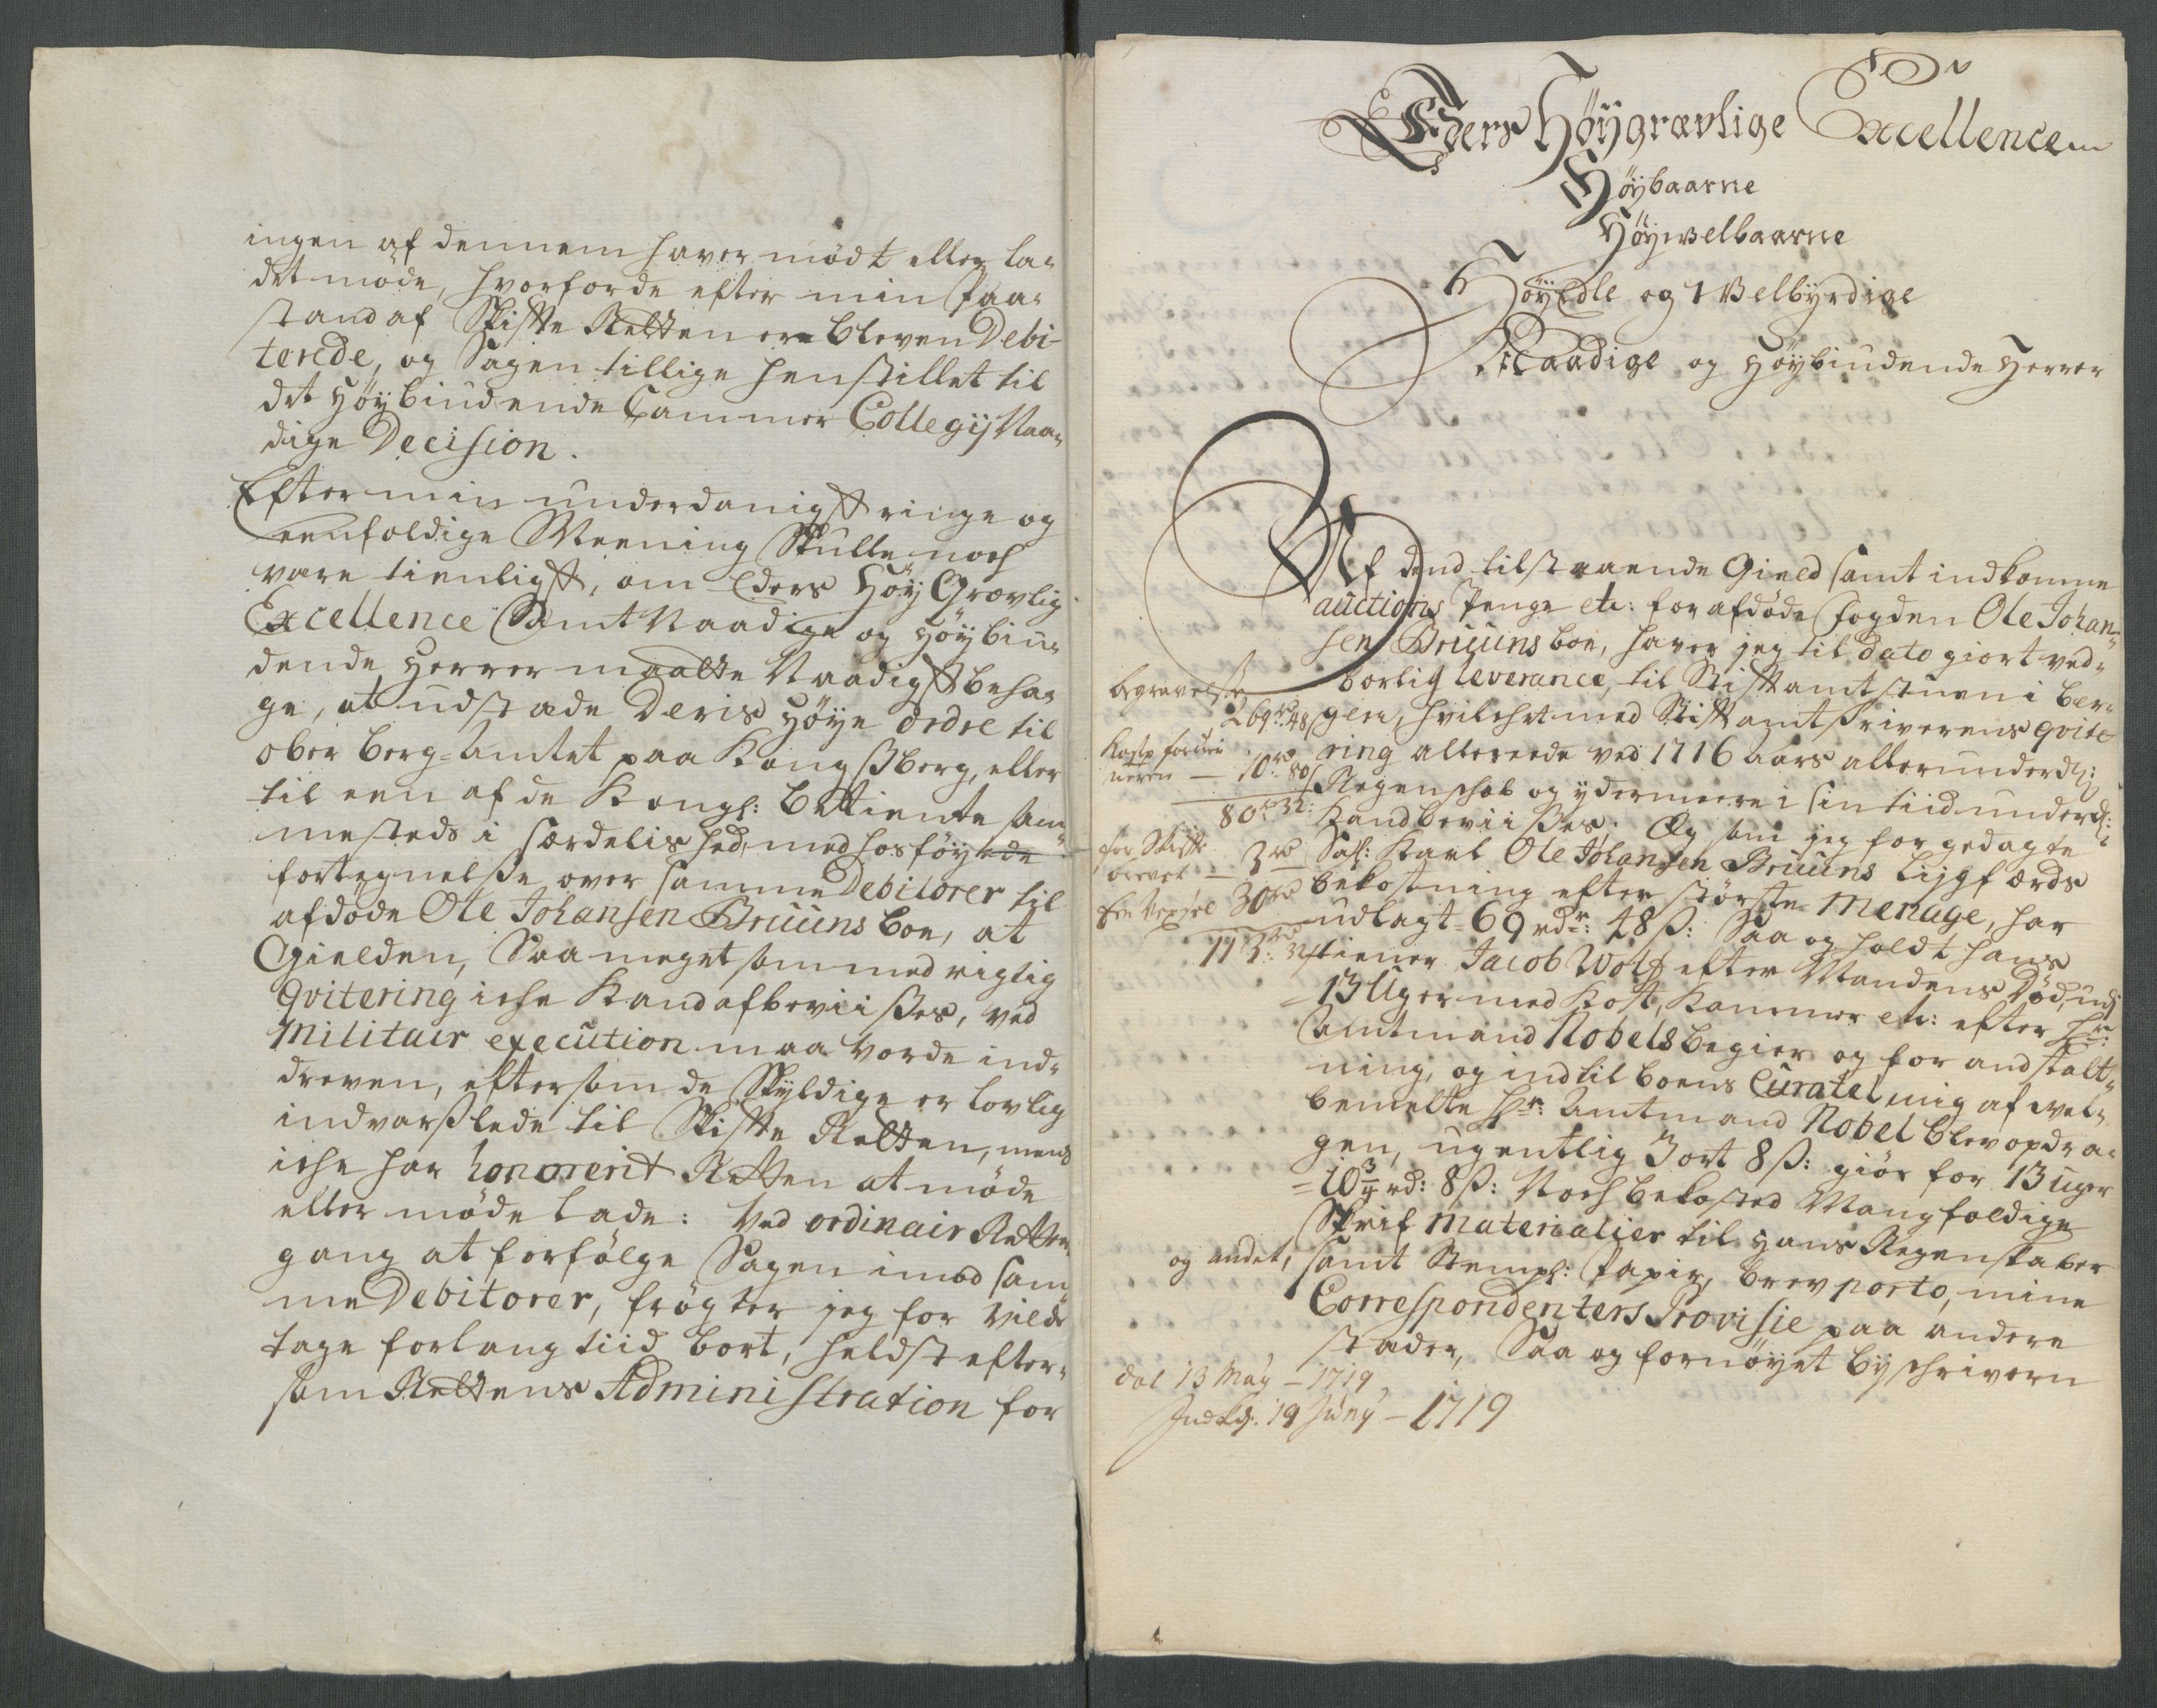 ingen af dennem haver mödt eller la-
det möde, hvorforde efter min Paa-
stand af Skifte Retten ere bleven Debi-
terede, og Sagen tillige henstillet til
det Höÿbiudende Cammer Collegij Naa-
dige Decision.
Efter min underdanigst ringe og
eenfoldige Meening Skulle noch
være tienligst, om Eders Höÿ Grævlig
Excellence Samt Naadige og Höÿbiu-
dende Herrer maatte Naadigst beha-
ge, at udstæde Deris Höÿe ordre til
ober berg-Amtet paa Kongsberg, eller
til een af de Kongl: bettiente sam-
mesteds i særdelished, med hosföÿede
fortegnelsse over samme Debitorer til
afdöde Ole Johansen Bruuns boe, at
Gielden, Saa meget som med rigtig
Qvitering iche Kand afbeviisses, ved
Militair execution maa vorde ind-
dreven, eftersom de Skÿldige er lovlig
indvarsslede til Skifte Retten, mens
iche har honorerit Retten at möde
eller möde lade: Ved ordinair Retter-
gang at forfölge Sagen imod sam-
me Debitorer, frögter jeg for vilde
tage forlang tiid bort, heldst efter-
som Rettens Administration for
Eders Höÿgrævlige Excellence
Höÿbaarne
Höÿwelbaarne
Höÿædle og Welbyrdige
Naadige og Höÿbiudende Herrer
Af dend tilstaaende Gield samt indkomne
auctions Penge etc: for afdöde fogden Ole Johan-
sen Bruuns boe, haver jeg til dato giort ved-
borlig leverance, til Stiftamtstuen i Ber-
gen, hvilchet med Stiftamtskriverens qvite-
ring allereede ved 1716 aars allerunderd:
Regenschab og ÿdermeere i sin tiid underd:
Kand beviisses. Og som jeg for gedagte
Sahl: Karl Ole Johansen Bruuns Lijgfærds
bekostning efter störste Menage, har
udlagt 69 rdr: 48 ß: Saa og holdt hans
tiener Jacob Wolf efter Mandens Död, udj
13 Uger med Kost, Kammer etc: efter Hr:
Amtmand Nobels begier og for andstalt-
ning, og indtil boens Curatel mig af vel-
bemelte Hr: Amtmand Nobel blev opdra-
gen, ugentlig 3 ort 8 ß: giör for 13 uger
= 10¾ rd: 8 ß: Noch bekosted Mangfoldige
Skrif Materialier til hans Regenskaber
og andet, samt Stempl: Papir, brev porto, mine
Correspondenters Provisie paa andere
stæder, Saa og fornöÿet bÿschriveren
begravelse
269 rd: 48
Kostp: for tien
neren — 10 rd 80
80 rd 32:
for Skifte
brevet — 3 rd
for Vexsel 30 rd
113: 32
dat 13 Maÿ — 1719
Indlg: 19 Junÿ — 1719